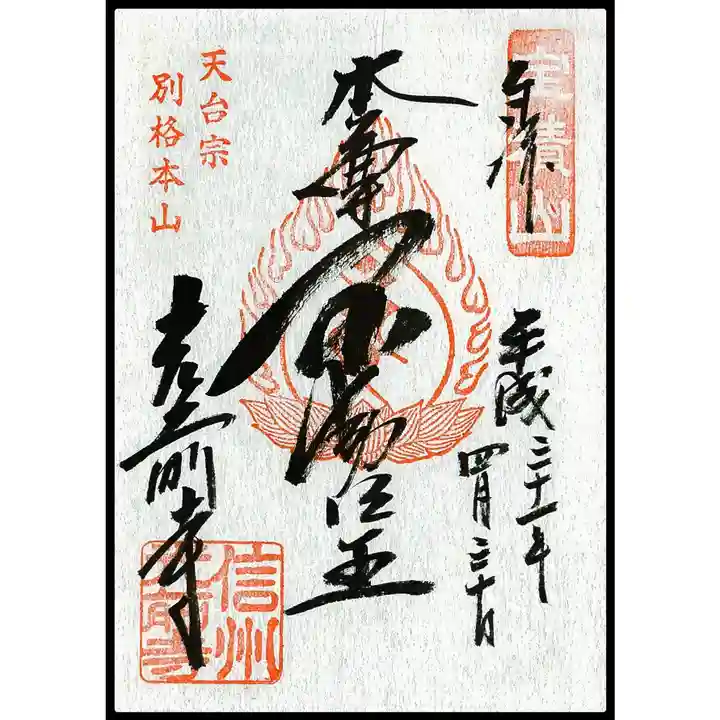 奉拝
寶積山
平成三十一年
四月三十日
本尊
不動明王
天台宗
別格本山
光前寺
信州
光前寺